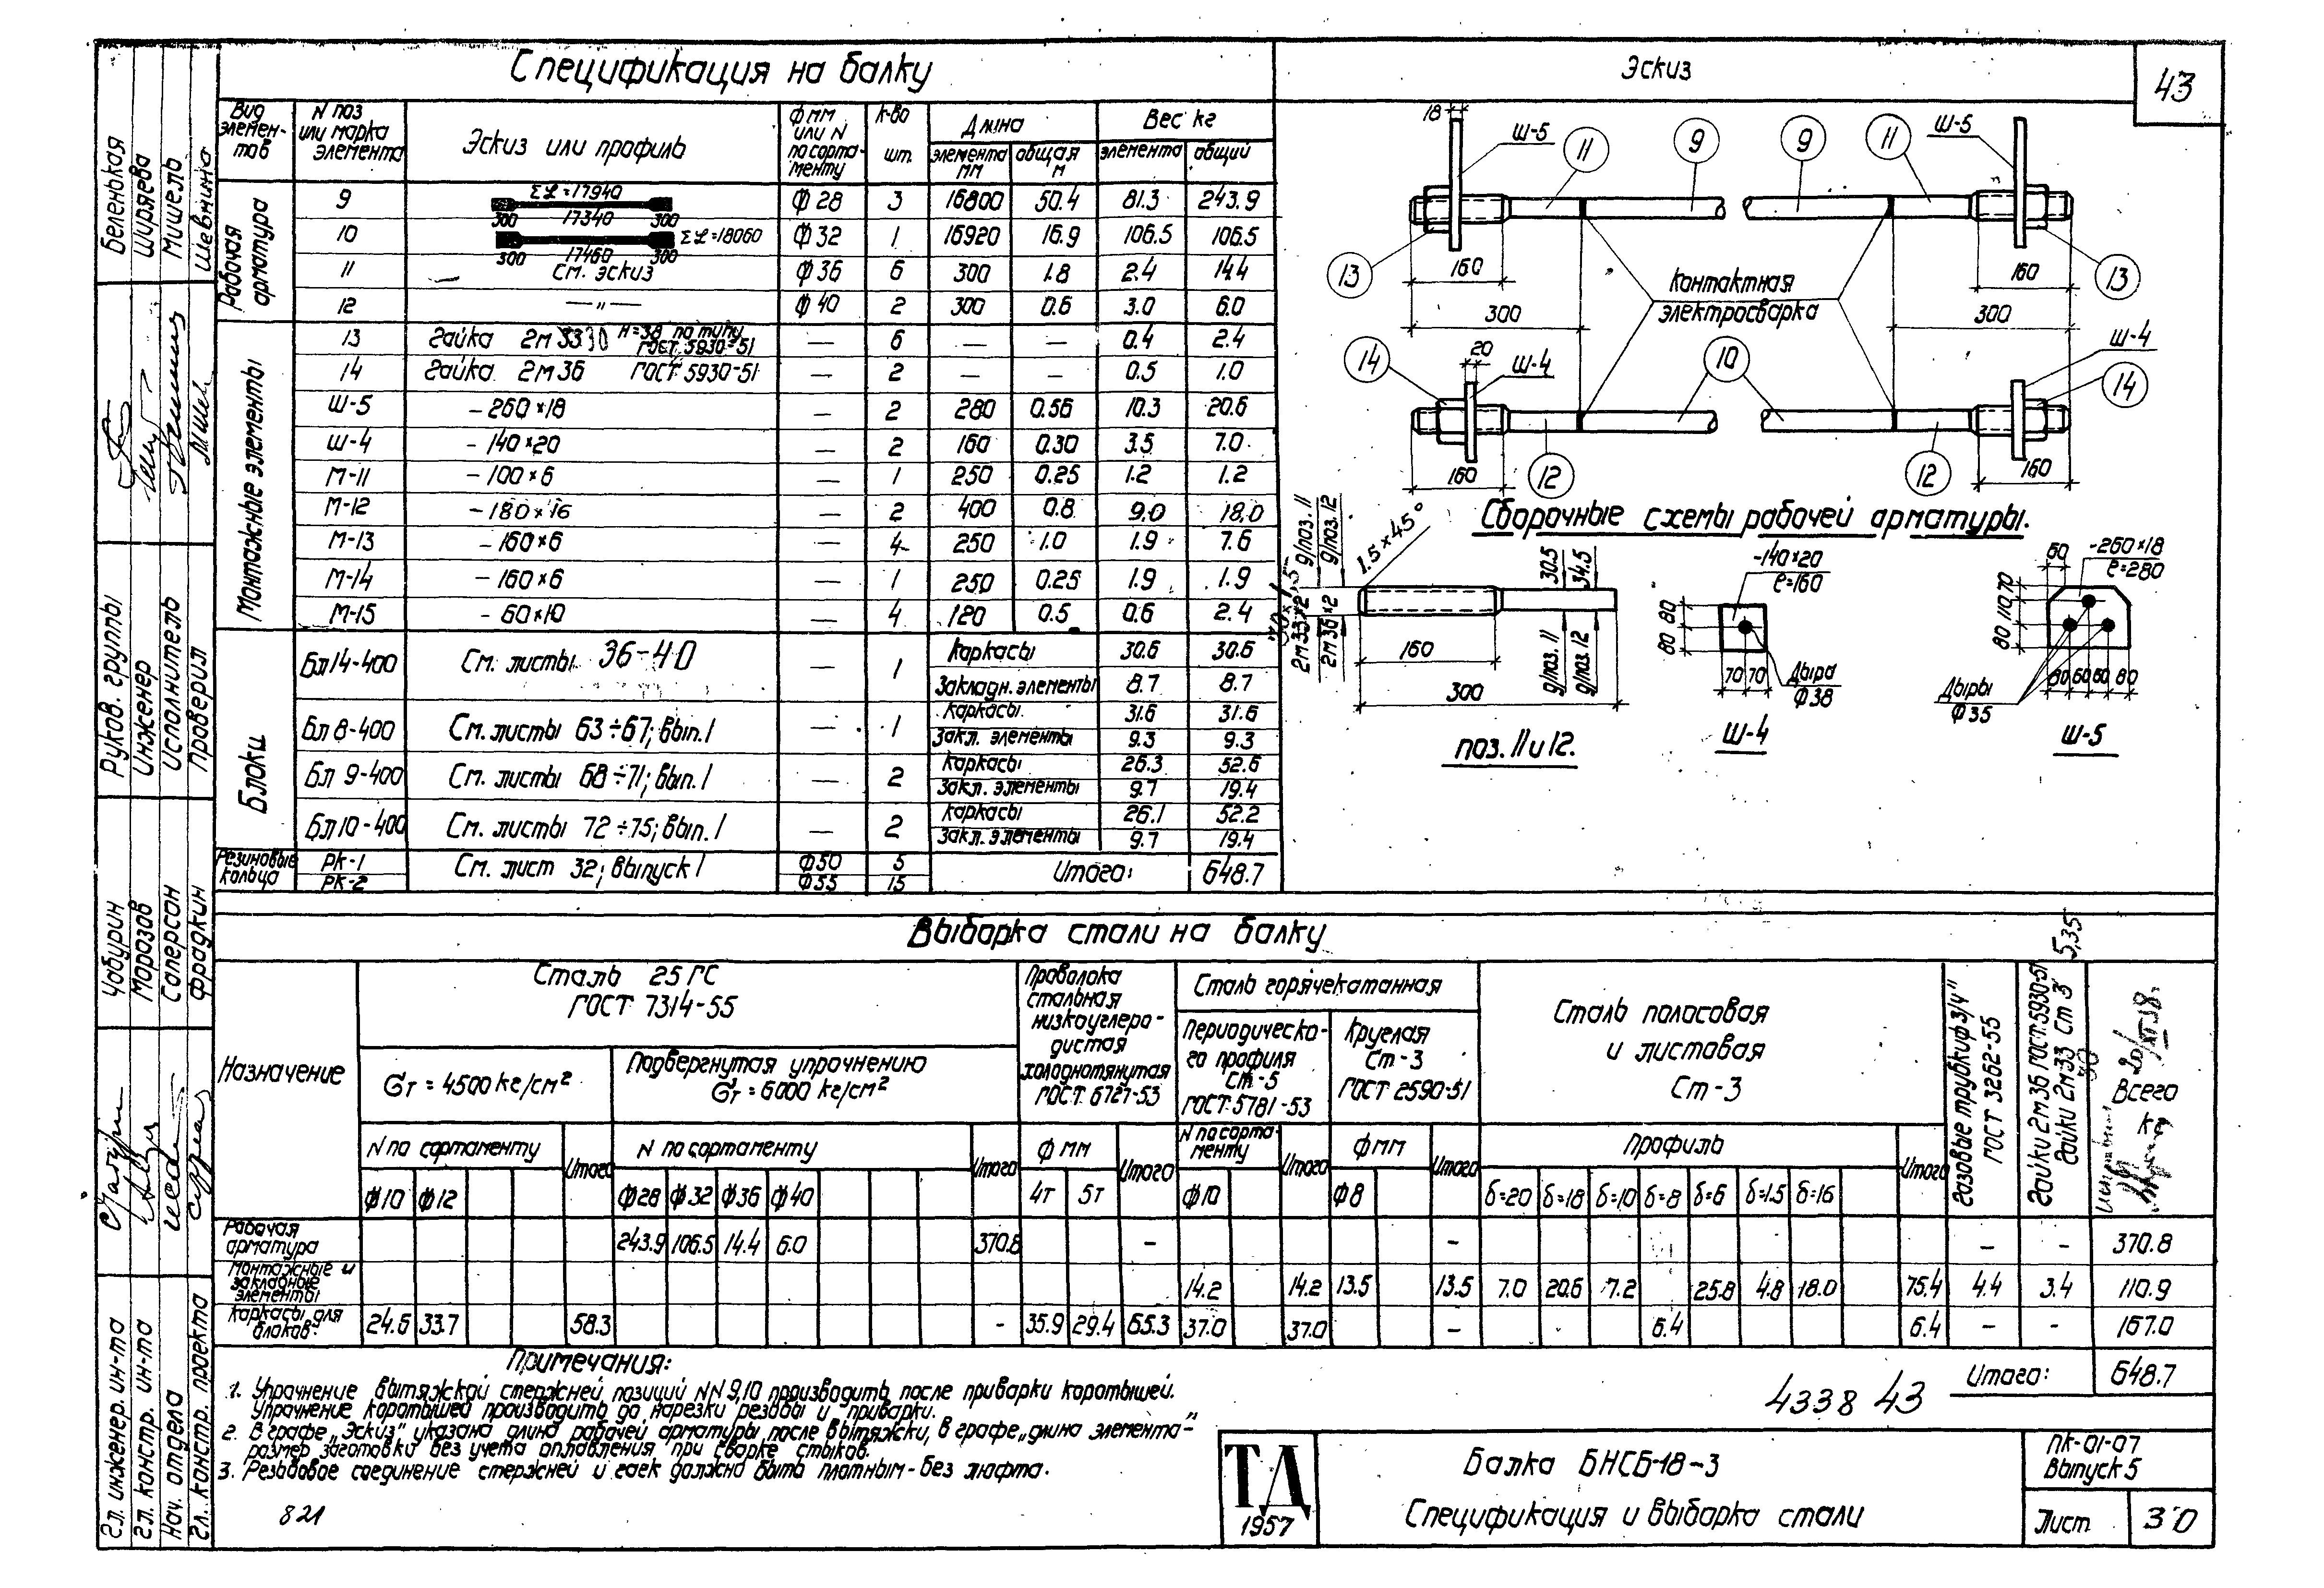 Спецификация на балку
Эскиз
43
Вид элемен-тов | N поз или марка элемента | Эскиз или профиль | Ф мм или N по сорта-менту | к-во шт. | Длина элемента мм | Длина общая м | Вес кг элемента | Вес кг общий
Рабочая арматура
9 | Σℓ=17940 300 17340 300 | Ф 28 | 3 | 16800 | 50.4 | 81.3 | 243.9
10 | Σℓ=18060 300 17460 300 | Ф 32 | 1 | 16920 | 16.9 | 106.5 | 106.5
11 | См. эскиз | Ф 36 | 6 | 300 | 1.8 | 2.4 | 14.4
12 | —"— | Ф 40 | 2 | 300 | 0.6 | 3.0 | 6.0
Монтажные элементы
13 | Гайка 2м 3330 H=38 по типу ГОСТ 5930-51 | — | 6 | — | — | 0.4 | 2.4
14 | Гайка 2м 36 ГОСТ 5930-51 | — | 2 | — | — | 0.5 | 1.0
Ш-5 | -260×18 | — | 2 | 280 | 0.56 | 10.3 | 20.6
Ш-4 | -140×20 | — | 2 | 160 | 0.30 | 3.5 | 7.0
М-11 | -100×6 | — | 1 | 250 | 0.25 | 1.2 | 1.2
М-12 | -180×16 | — | 2 | 400 | 0.8 | 9.0 | 18.0
М-13 | -160×6 | — | 4 | 250 | 1.0 | 1.9 | 7.6
М-14 | -160×6 | — | 1 | 250 | 0.25 | 1.9 | 1.9
М-15 | -60×10 | — | 4 | 120 | 0.5 | 0.6 | 2.4
Блоки
Бл 14-400 | См. листы 36-40 | — | 1 | Каркасы | 30.6 | 30.6
Закладн. элементы | 8.7 | 8.7
Бл 8-400 | См. листы 63÷67; вып. 1 | — | 1 | Каркасы | 31.6 | 31.6
Закл. элементы | 9.3 | 9.3
Бл 9-400 | См. листы 68÷71; вып. 1 | — | 2 | Каркасы | 26.3 | 52.6
Закл. элементы | 9.7 | 19.4
Бл 10-400 | См. листы 72÷75; вып. 1 | — | 2 | Каркасы | 26.1 | 52.2
Закл. элементы | 9.7 | 19.4
Резиновые кольца | РК-1 | См. лист 32; выпуск 1 | Ф50 | 5 | Итого: | 648.7
РК-2 | Ф55 | 15
18 Ш-5 11 9 9 11 Ш-5
13 160 160 13
Контактная
электросварка
300 300
14 20 Ш-4 10 Ш-4 14
160 12 12 160
Сборочные схемы рабочей арматуры.
30×1,5
2м 33×2 д/поз. 11
2м 36×2 д/поз. 12
1.5×45°
30.5 д/поз. 11
34.5 д/поз. 12
160
300
поз. 11 и 12.
-140×20
ℓ=160
80 80
70 70
Дыра
Ф 38
Ш-4
60
-260×18
ℓ=280
80 110 70
80 60 60 80
Дыры
Ф 35
Ш-5
Выборка стали на балку
Назначение
Сталь 25 ГС
ГОСТ 7314-55
σт = 4500 кг/см²
Подвергнутая упрочнению
σт = 6000 кг/см²
N по сортаменту | Итого | N по сортаменту | Итого
Ф10 Ф12 | Ф28 Ф32 Ф36 Ф40
Проволока
стальная
низкоуглеро-
дистая
холоднотянутая
ГОСТ 6727-53
Ф мм | Итого
4т 5т
Сталь горячекатанная
Периодическо-
го профиля
Ст-5
ГОСТ 5781-53
N по сорта-менту | Итого
Ф10
Круглая
Ст-3
ГОСТ 2590-51
Ф мм | Итого
Ф8
Сталь полосовая
и листовая
Ст-3
Профиль | Итого
δ=20 δ=18 δ=10 δ=8 δ=6 δ=1.5 δ=16
Газовые трубки ф 3/4"
ГОСТ 3262-55
Гайки 2м 36 ГОСТ 5930-51
Гайки 2м 33 Ст 3
30
5,35
20/XII 58г.
Всего
кг
Рабочая арматура | 243.9 | 106.5 | 14.4 | 6.0 | 370.8 | - | - | - | - | 370.8
Монтажные и закладные элементы | 14.2 | 14.2 | 13.5 | 13.5 | 7.0 | 20.6 | 7.2 | 25.8 | 4.8 | 18.0 | 75.4 | 4.4 | 3.4 | 110.9
Каркасы для блоков | 24.6 | 33.7 | 58.3 | - | 35.9 | 29.4 | 65.3 | 37.0 | 37.0 | - | 6.4 | 6.4 | - | - | 167.0
Итого: 648.7
Примечания:
1. Упрочнение вытяжкой стержней позиций NN 9,10 производить после приварки коротышей.
Упрочнение коротышей производить до нарезки резьбы и приварки.
2. В графе „Эскиз" указана длина рабочей арматуры после вытяжки, в графе „длина элемента"-
размер заготовки без учета оплавления при сварке стыков.
3. Резьбовое соединение стержней и гаек должно быть плотным - без люфта.
821
4338 43
ТД
1957
Балка БНСБ-18-3
Спецификация и выборка стали
ПК-01-07
Выпуск 5
Лист 30
Гл. инженер. ин-та Чабурин
Гл. констр. ин-та Морозов
Нач. отдела Саперсон
Гл. констр. проекта Фрадкин
Руков. группы Беленькая
Инженер Ширяева
Исполнитель Мишель
Проверил Шевнина